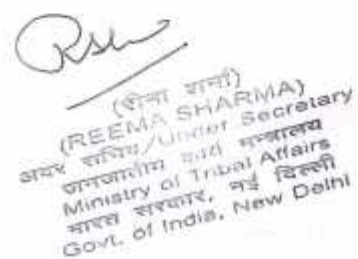 (रीना शर्मा)
(REEMA SHARMA)
अवर सचिव/Under Secretary
जनजातीय कार्य मन्त्रालय
Ministry of Tribal Affairs
भारत सरकार, नई दिल्ली
Govt. of India, New Delhi